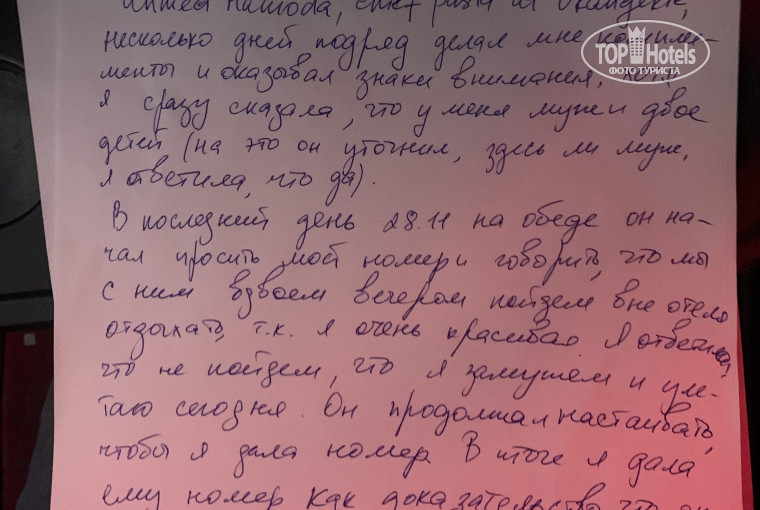 несколько дней подряд делал мне компли-
менты и оказывал знаки внимания, хотя
я сразу сказала, что у меня муж и двое
детей (на это он уточнил, здесь ли муж,
я ответила, что да).
В последний день 28.11 на обеде он на-
чал просить мой номер и говорить, что мы
с ним вдвоем вечером пойдем вне отеля
отдыхать, т.к. я очень красивая. Я ответила,
что не пойдем, что я замужем и уле-
таю сегодня. Он продолжал настаивать,
чтобы я дала номер. В итоге я дала
ему номер как доказательство, что он
TOP Hotels
ФОТО ТУРИСТА